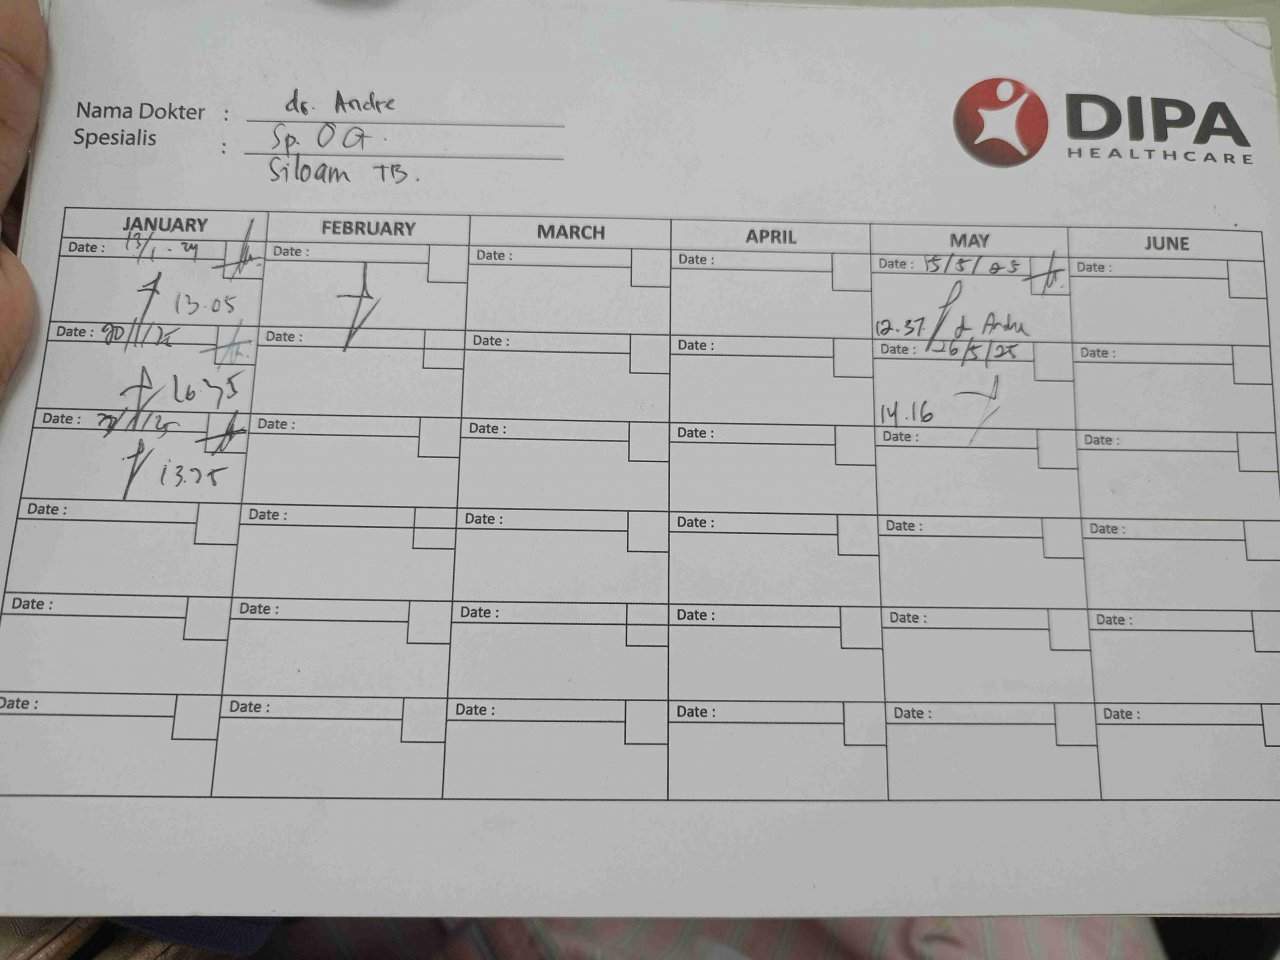 Nama Dokter : dr. Andre
Spesialis : Sp. OG.
Siloam TB.
DIPA
HEALTHCARE
JANUARY FEBRUARY MARCH APRIL MAY JUNE
Date : 13/1-24 Date : Date : Date : Date : 15/5/25 Date :
13.05 12.37 d Andre
Date : 20/1/25 Date : Date : Date : Date : 26/5/25 Date :
16.35 14.16
Date : Date : Date : Date : Date : Date :
13.25
Date : Date : Date : Date : Date : Date :
Date : Date : Date : Date : Date : Date :
Date : Date : Date : Date : Date : Date :